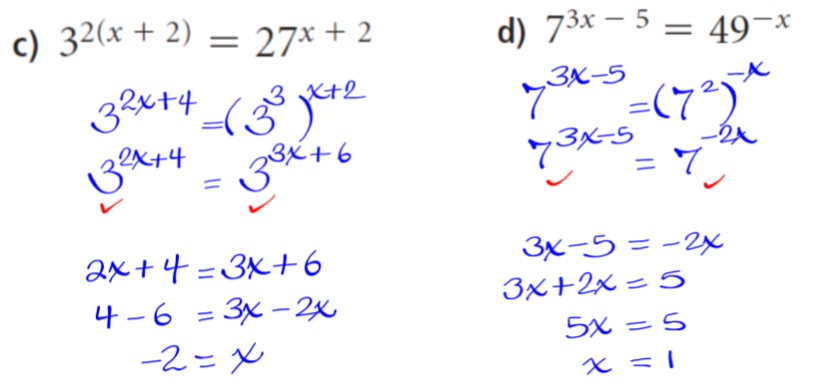 c) 3^{2(x + 2)} = 27^{x + 2}
3^{2x+4} = (3^3)^{x+2}
3^{2x+4} = 3^{3x+6}
2x+4 = 3x+6
4-6 = 3x-2x
-2 = x
d) 7^{3x - 5} = 49^{-x}
7^{3x-5} = (7^2)^{-x}
7^{3x-5} = 7^{-2x}
3x-5 = -2x
3x+2x = 5
5x = 5
x = 1